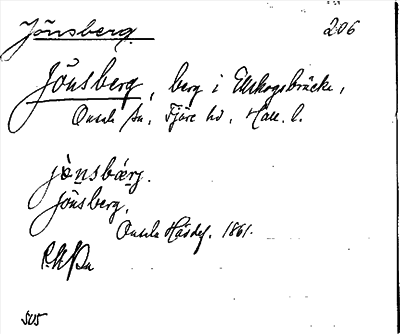 Jönsberg 206
Jönsberg, berg i Ellskogsbräcka,
Onsala sn, Fjäre hd, Hall. l.
jȯ̀nsbæ̀rj.
Jönsberg.
Onsala Häsdef. 1861.
505